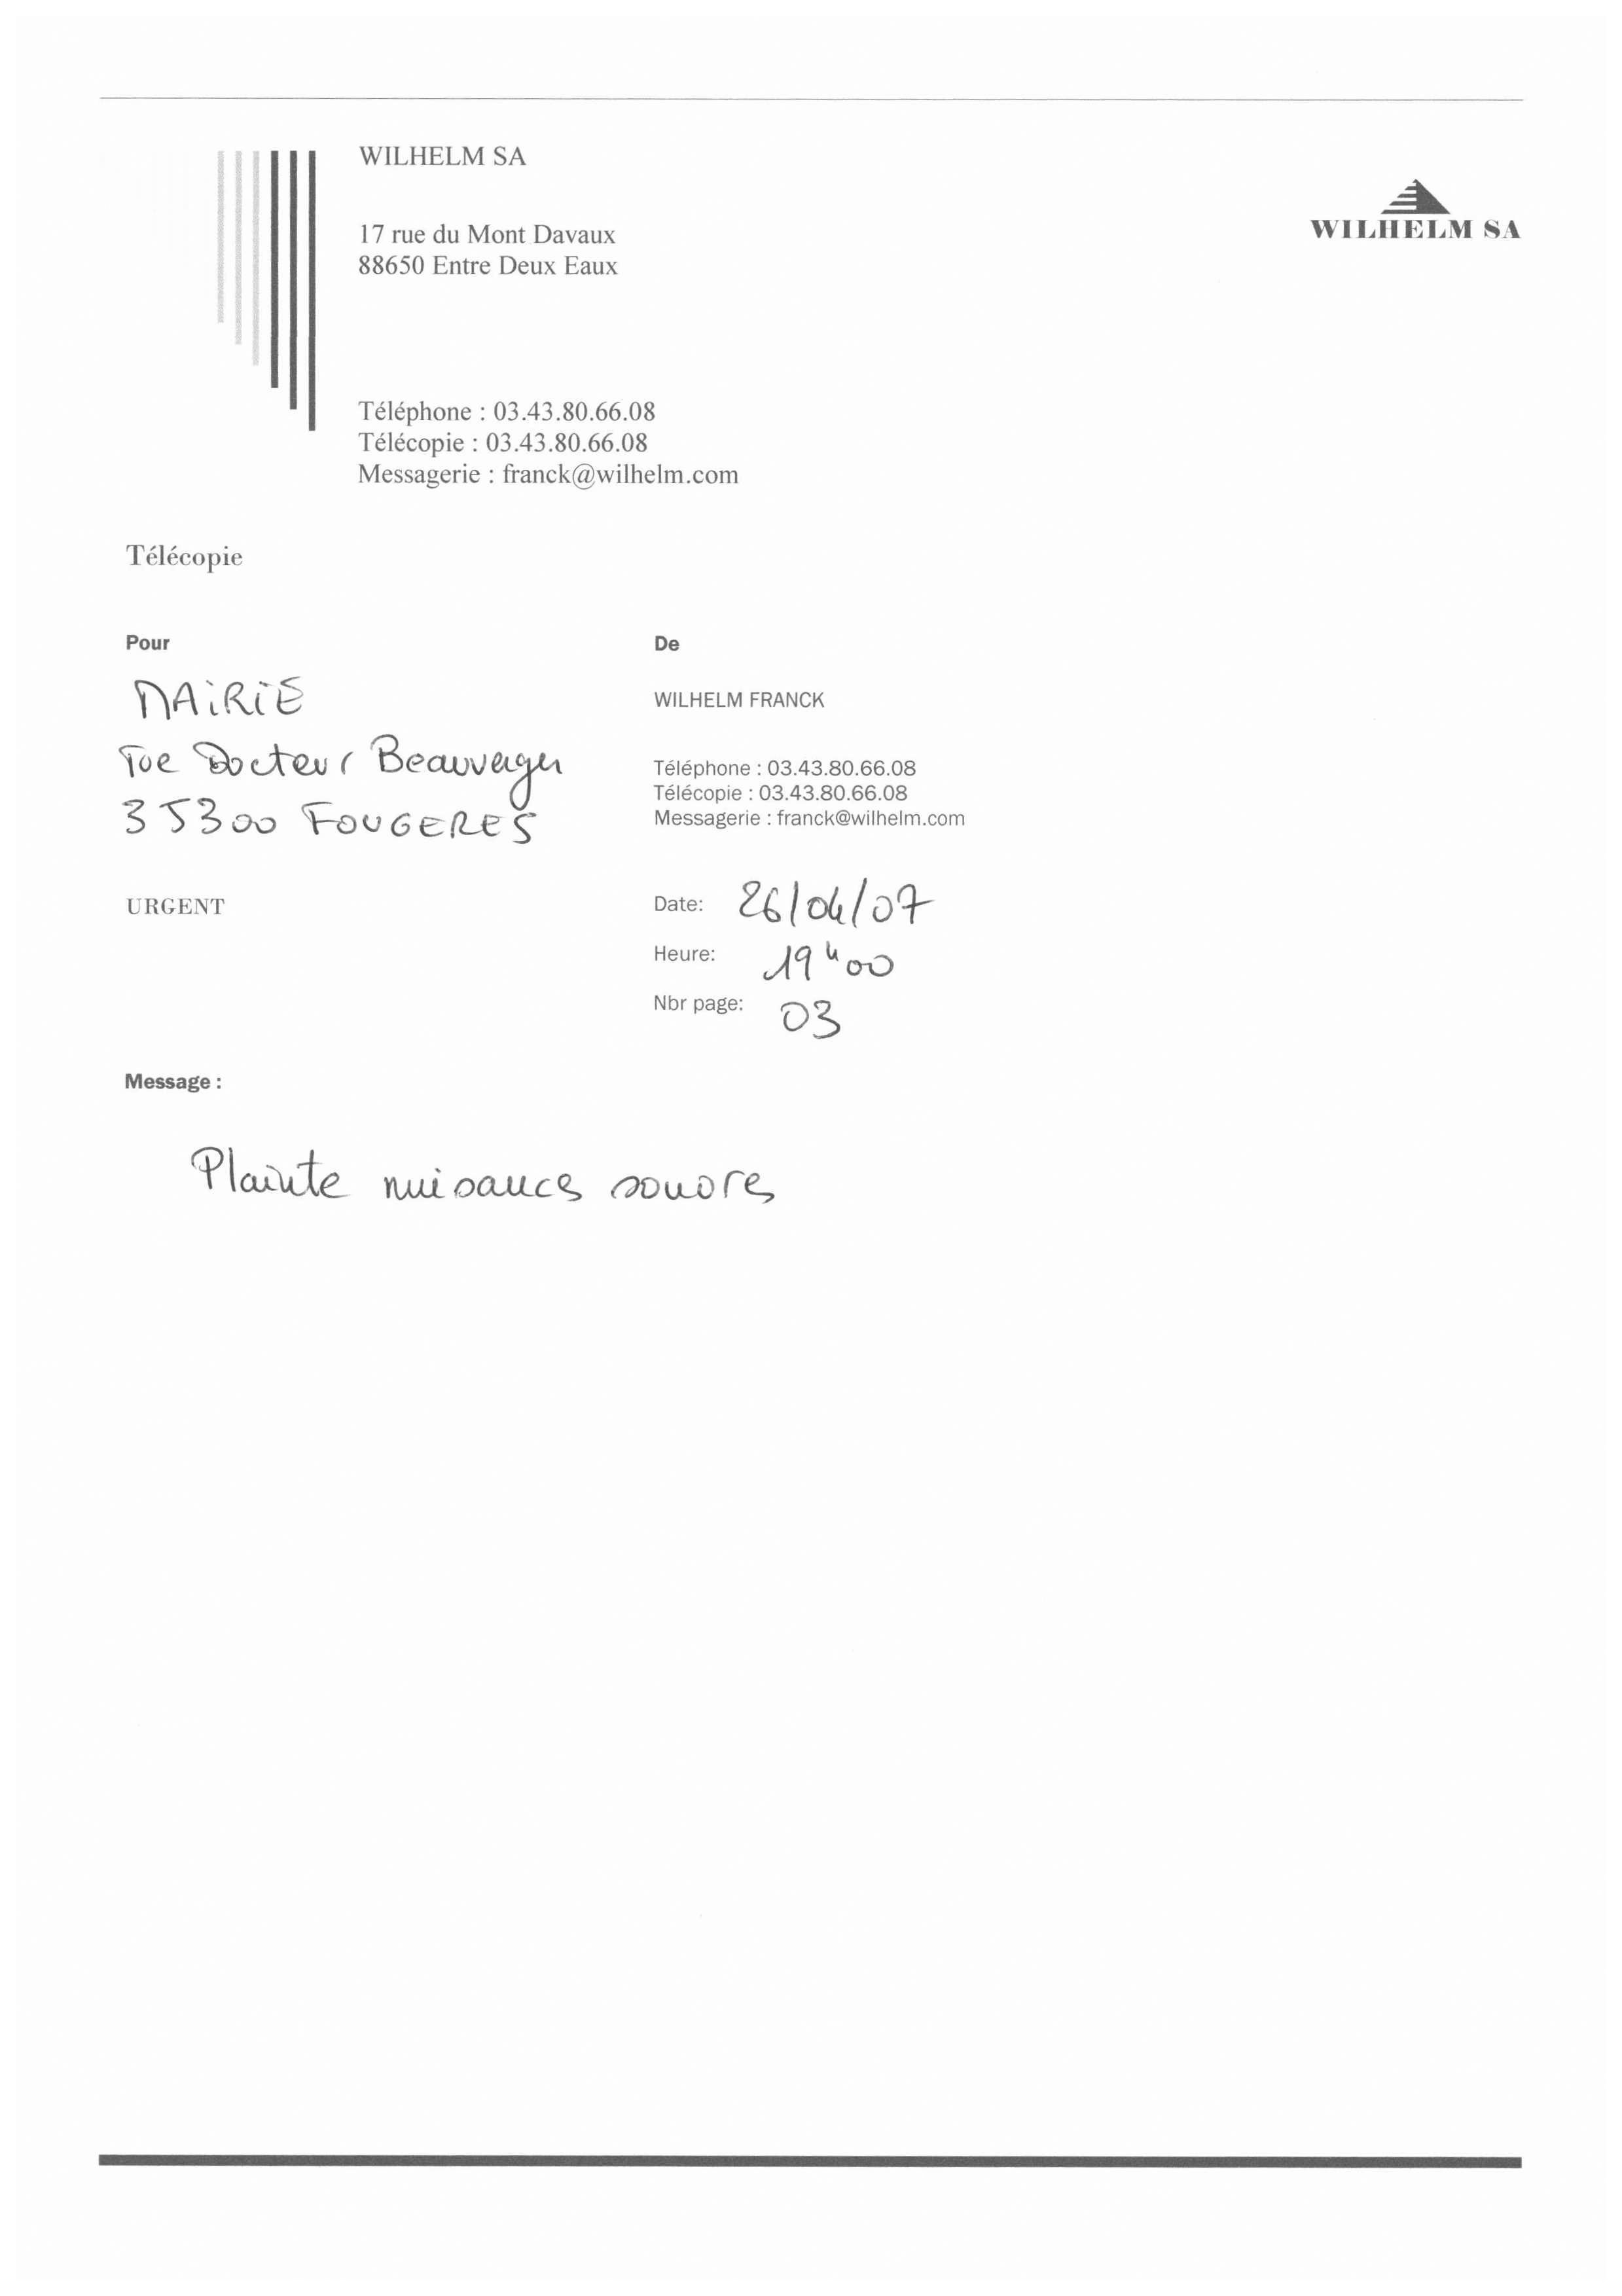 WILHELM SA
17 rue du Mont Davaux
88650 Entre Deux Eaux
WILHELM SA
Téléphone : 03.43.80.66.08
Télécopie : 03.43.80.66.08
Messagerie : franck@wilhelm.com
Télécopie
Pour
MAiRiE
rue Docteur Beauverger
35300 FOUGERES
URGENT
De
WILHELM FRANCK
Téléphone : 03.43.80.66.08
Télécopie : 03.43.80.66.08
Messagerie : franck@wilhelm.com
Date: 26/04/07
Heure: 19h00
Nbr page: 03
Message :
Plainte nuisances sonores